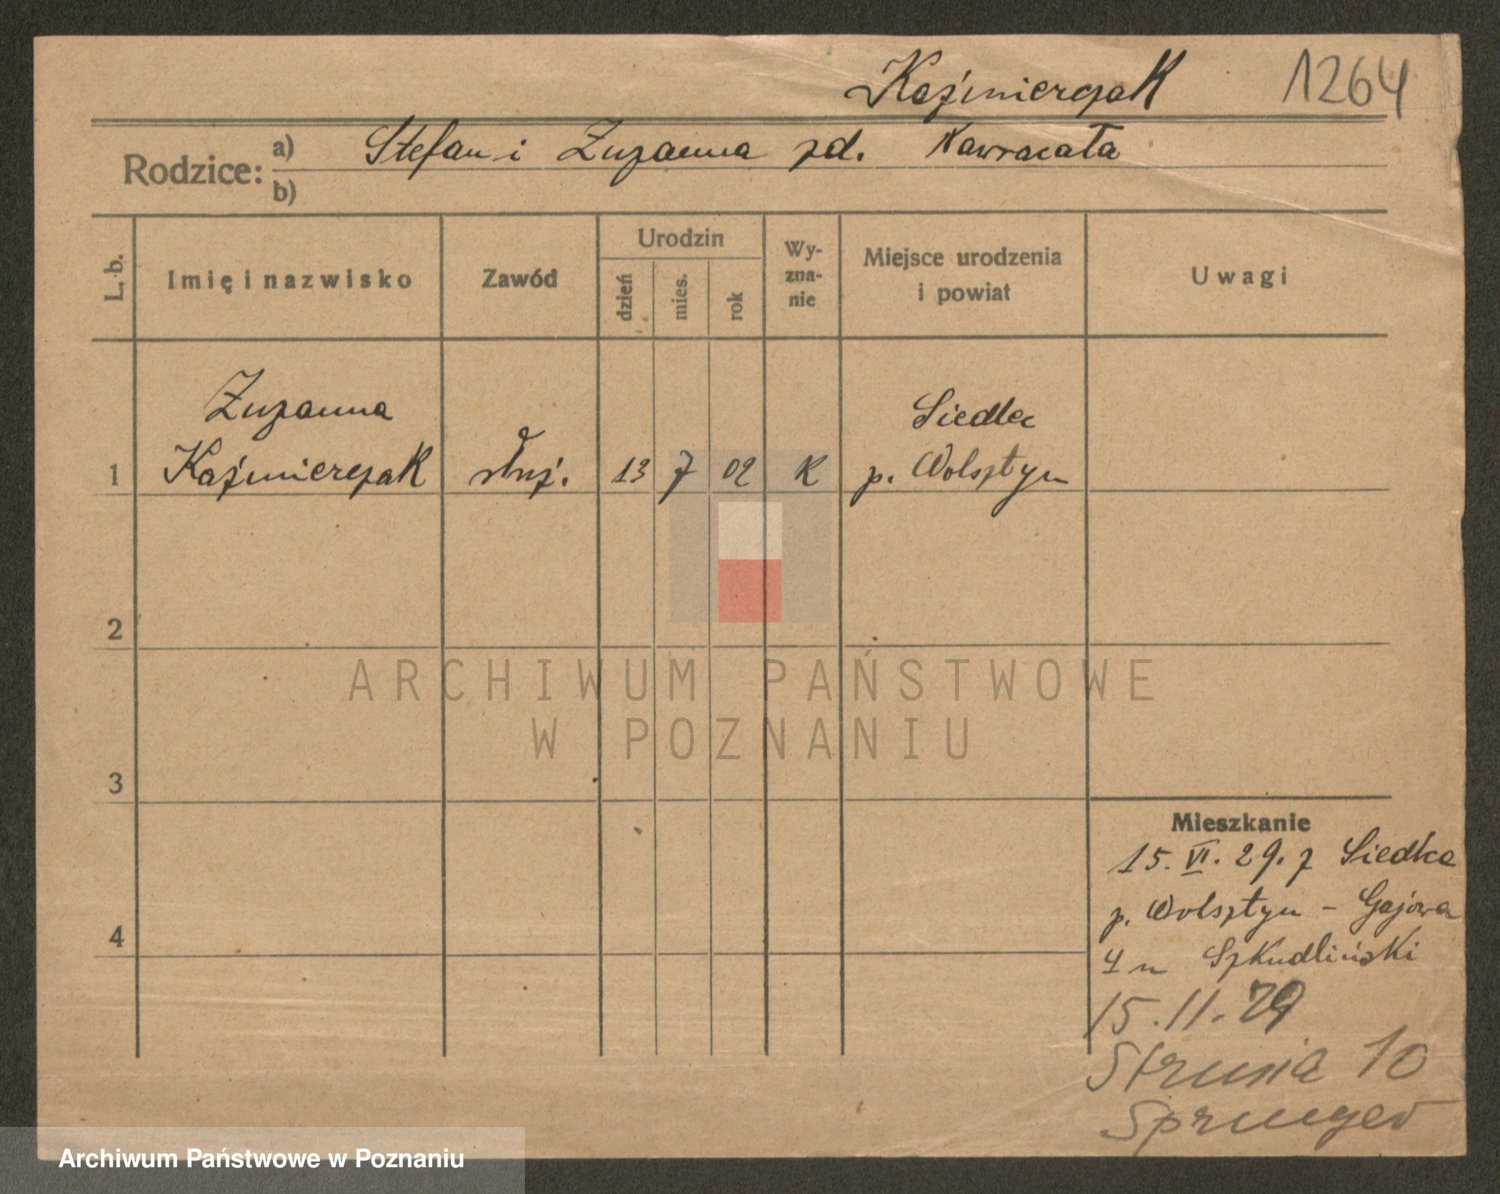 Kaźmierczak 1264
Rodzice: a) Stefan i Zuzanna zd. Nawracała
b)
L. b. Imię i nazwisko Zawód Urodzin dzień mies. rok Wy-zna-nie Miejsce urodzenia i powiat Uwagi
Zuzanna Siedlec
1 Kaźmierczak służ. 13 7 02 K p. Wolsztyn
2
ARCHIWUM PAŃSTWOWE
W POZNANIU
3
Mieszkanie
15. VI. 29. z Siedlca
p. Wolsztyn - Gajowa
4
4 u Szkudliński
15.11.29
Strusia 10
Springer
Archiwum Państwowe w Poznaniu